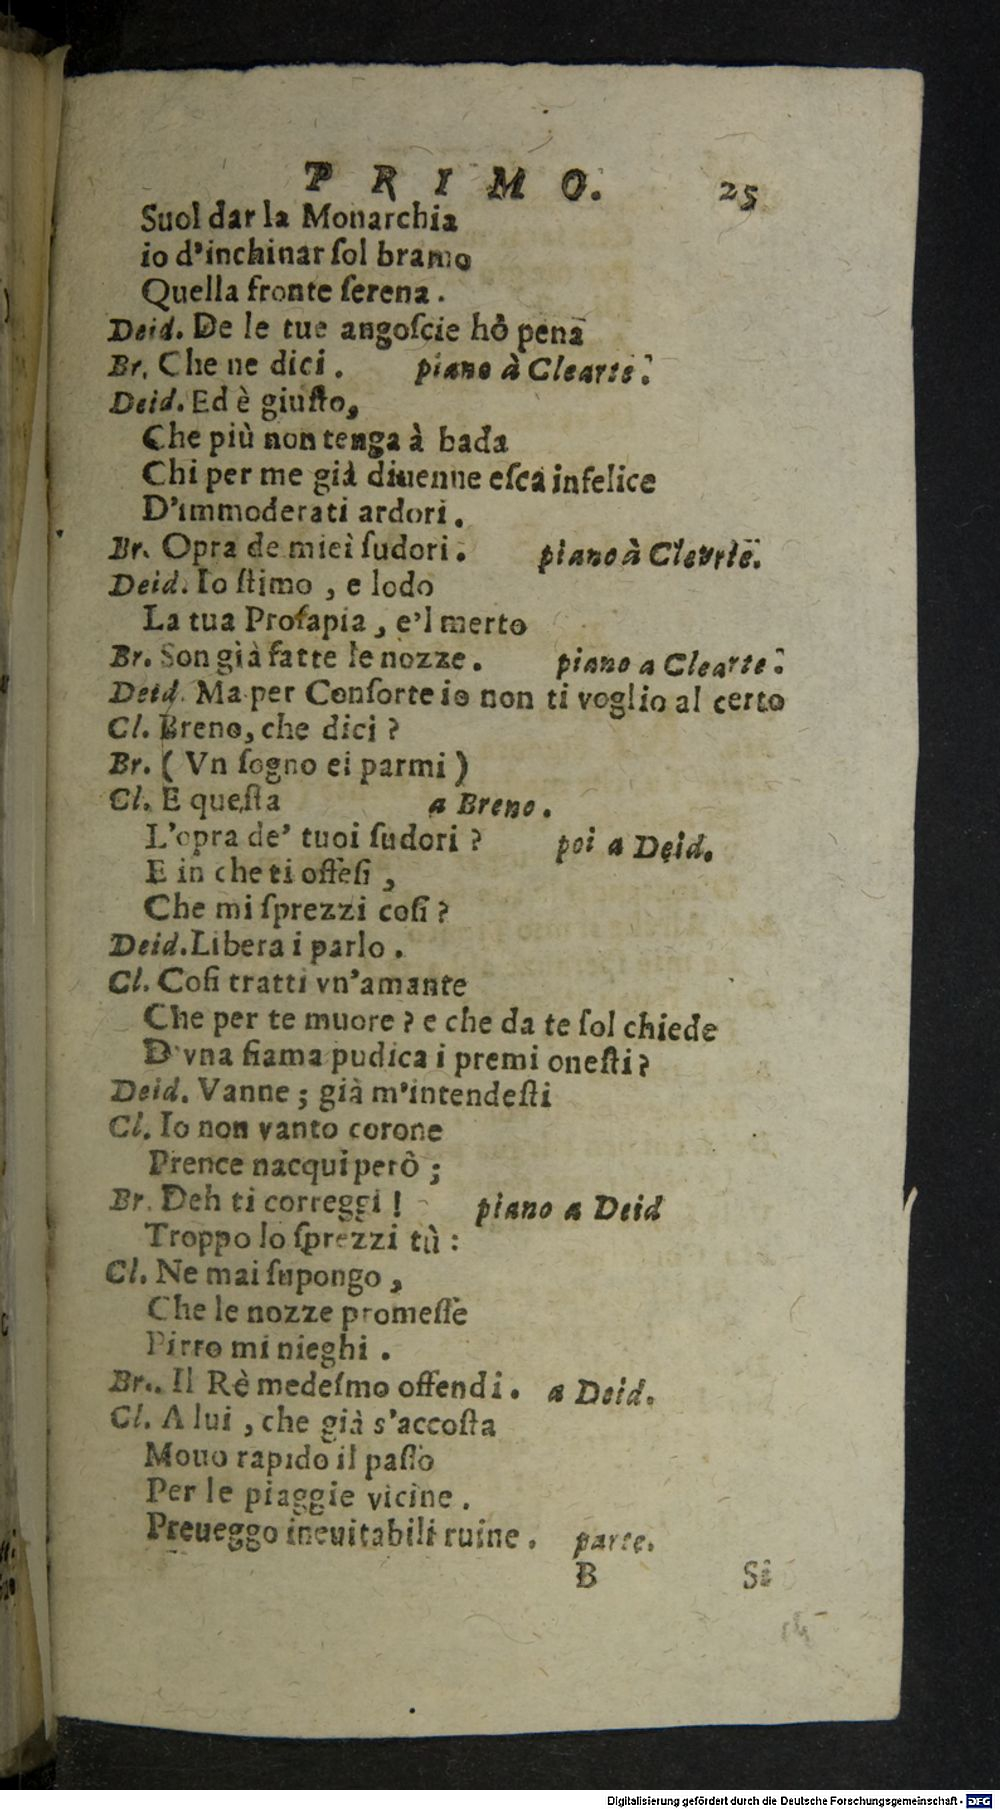 PRIMO. 25
Suol dar la Monarchia
io d'inchinar ſol bramo
Quella fronte ſerena.
Deid. De le tue angoſcie hò pena
Br. Che ne dici. piano à Clearte.
Deid. Ed è giuſto,
Che più non tenga à bada
Chi per me già diuenne eſca infelice
D'immoderati ardori.
Br. Opra de miei ſudori. piano à Clearte.
Deid. Io ſtimo, e lodo
La tua Proſapia, e'l merto
Br. Son già fatte le nozze. piano a Clearte.
Deid. Ma per Conſorte io non ti voglio al certo
Cl. Breno, che dici?
Br. (Vn ſogno ei parmi)
Cl. E queſta a Breno.
L'opra de' tuoi ſudori? poi a Deid.
E in che ti offeſi,
Che mi ſprezzi coſi?
Deid. Libera i parlo.
Cl. Coſi tratti vn'amante
Che per te muore? e che da te ſol chiede
D'vna fiama pudica i premi oneſti?
Deid. Vanne; già m'intendeſti
Cl. Io non vanto corone
Prence nacqui però;
Br. Deh ti correggi! piano a Deid
Troppo lo ſprezzi tù:
Cl. Ne mai ſupongo,
Che le nozze promeſſe
Pirro mi nieghi.
Br.. Il Rè medeſmo offendi. a Deid.
Cl. A lui, che già s'accoſta
Mouo rapido il paſſo
Per le piaggie vicine.
Preueggo ineuitabili ruine. parte.
B Si
Digitalisierung gefördert durch die Deutsche Forschungsgemeinschaft - DFG